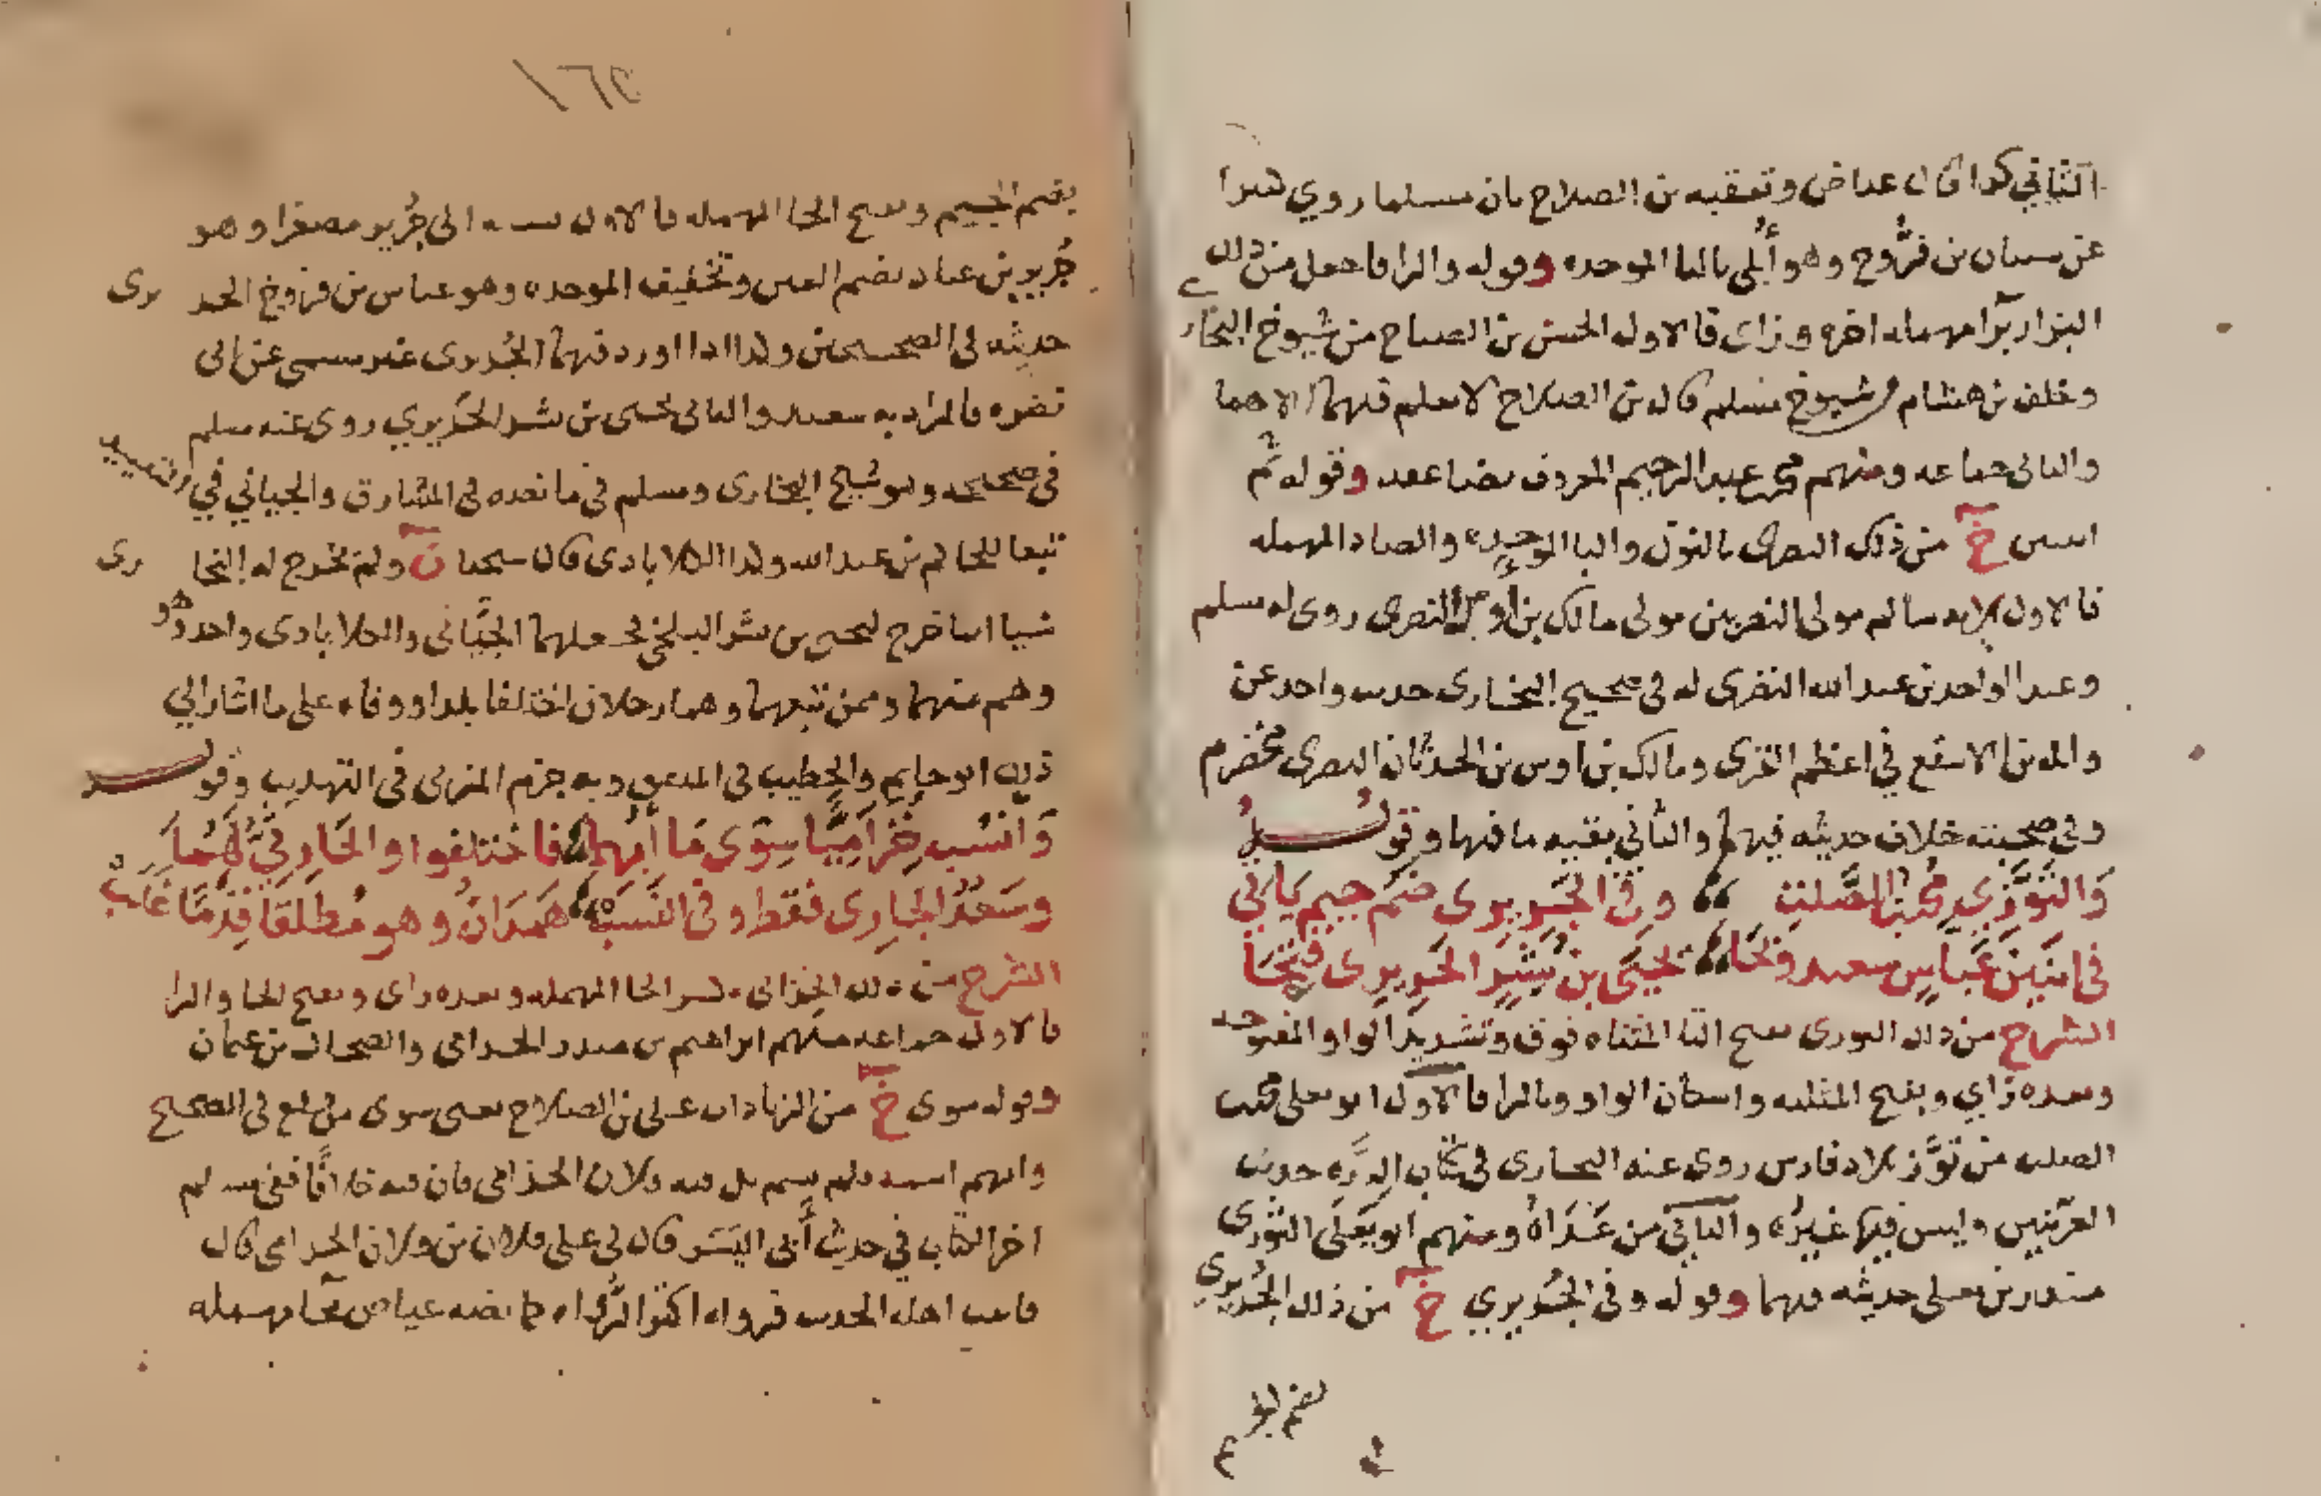 الثاني كذا قال عياض وتعقبه بن الصلاح بان مسلما روي كثيرا
عن سيبان بن فرُّوخ وهو أُبُلي بالبا الموحده وقوله والرا فاجعل من ذلك
البزار برَا مهمله اخره وزاى فالاول الحسن بن الصباح من شيوخ البخار
وخلف بن هشام من شيوخ مسلم قال بن الصلاح لا نعلم فيهما الا هما
والثانى جماعه ومنهم محمد بن عبد الرحيم المعروف بصاعقه وقوله ثم
انسبن خ من ذلك النصرى بالنون والبا الموحده والصاد المهمله
فالاول سالم مولى النصريين مولى مالك بن أوس النصرى روى له مسلم
وعبد الواحد بن عبد الله النصرى له في صحيح البخارى حديث واحد عن
واثله بن الاسقع في اعظم الفرى ومالك بن اوس بن الحدثان النصرى مخضرم
وفي صحبته خلاف حديثه فيهما والثاني بقيه ما فيها وقولُــهُ
وَالتَّوَّزِي محمد بن الصَّلت وفي الجُرَيرى ضم جيم يَاتي
في اثنين عَبَّاس سعيد وبحَا يحيَى بن بِشْرِ الحَرِيرِى فتحَا
الشرح من ذلك التوزى بفتح التا المثناه فوق وتشديد الواو المفتوحه
وبعده زاي وبفتح المثلثه واسكان الواو وبالرا فالاول ابو يعلى محمد بن
الصلت من تَوَّز بلاد فارس روى عنه البخارى في كتاب الردَّه حديث
العرنيين وليس فيها غيرُه والثاني من عَدَاهُ ومنهم ابو يَعْلَى الثوري
منذر بن يعلى حديثه فيهما وقوله وفي الجُريري خ من ذلك الجُريري
بضم الجيم
بضم الجيم وبفتح الحا المهمله فالاول نسبه الى جُرير مصغرا وهو
جُرير بن عباد بضم العين وتخفيف الموحده وهو عباس بن فروخ الجريرى
حديثه في الصحيحين ولذا اذا اورد فيهما الجُريرى غير مسمى عن ابى
نضره فالمراد به سعيد والثانى يحيى بن بشر الحَرِيري روى عنه مسلم
في صحيحه وهو شيخ البخارى ومسلم في ما نعده في المشارق والجياني في التقييد
تبعا للحاكم بن عبد الله وكذا الكلاباذى قال شيخنا ن ولم يخرج له البخارى
شيا انما خرج ليحيى بن بشر البلخي فجعلهما الجيَّانى والكلاباذى واحدا وهو
وهم منهما وممن تبعهما وهما رجلان اختلفا بلدا ووفاه على ما اشار الي
ذلك ابو حاتم والخطيب في المتفق وبه جزم المزى في التهذيب وقولــه
وَانْسُب حِزَامِيَّا سِوَى مَا أُبهِما فاختلفوا والحَارِثيُّ لَهُمَا
وسَعْدُ الجَارِى فقط وفي النَّسَب هَمْدَانُ وهو مُطلقَا قِدْمًا غَلَبْ
الشرح من ذلك الحِزامى بكسر الحا المهمله وبعده زاى وبفتح الحا والرا
فالاول جماعه منهم ابراهيم بن منذر الحزامى والضحاك بن عثمان
وقوله سوى خ من الزيادات على بن الصلاح يعنى سوى من وقع في الصحيح
وابهم اسمه ولم يسم بل فيه فلان الحزامى فان فيه خلافًا ففي مسلم
اخر الكتاب في حديث أَبى اليَسَر قال لي على فلان بن فلان الحزامى قال
فاتيت اهله الحديث فرواه اكثر الرُّواه كما نصه عياض بحَا مهمله